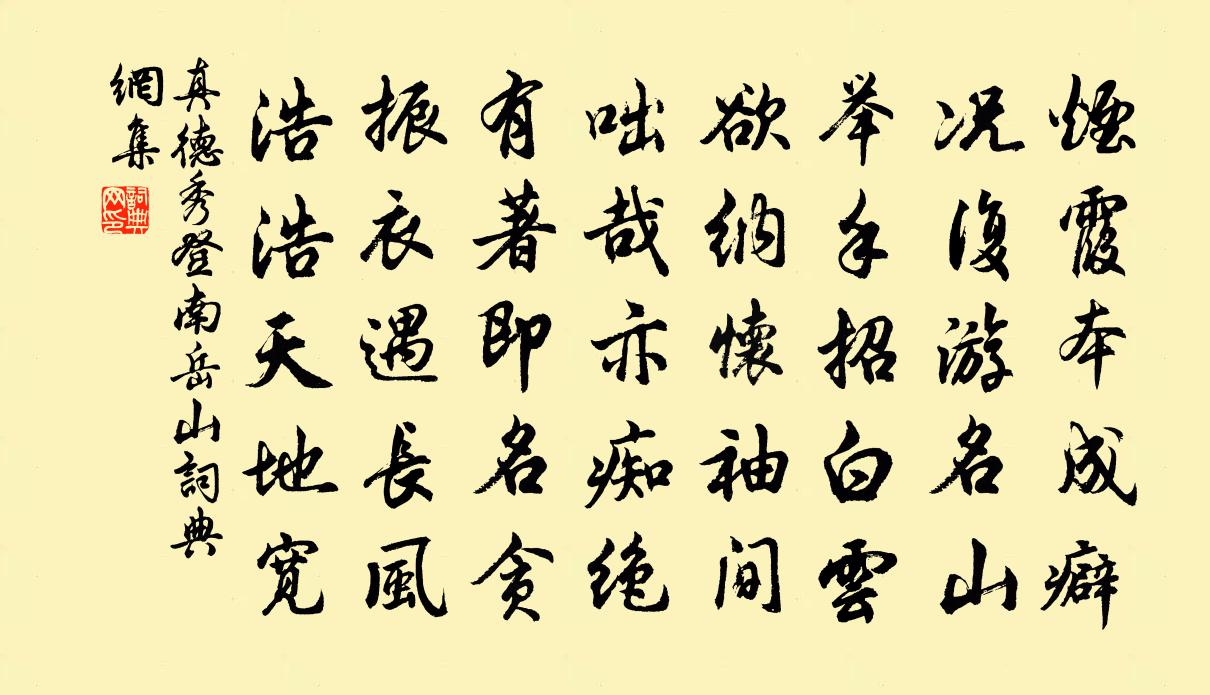 煙霞本成癖
况復游名山
举手招白雲
欲纳懷袖间
咄哉亦痴绝
有著即名贪
振衣遇長風
浩浩天地宽
真德秀登南岳山詞典
網集
詞典
网印